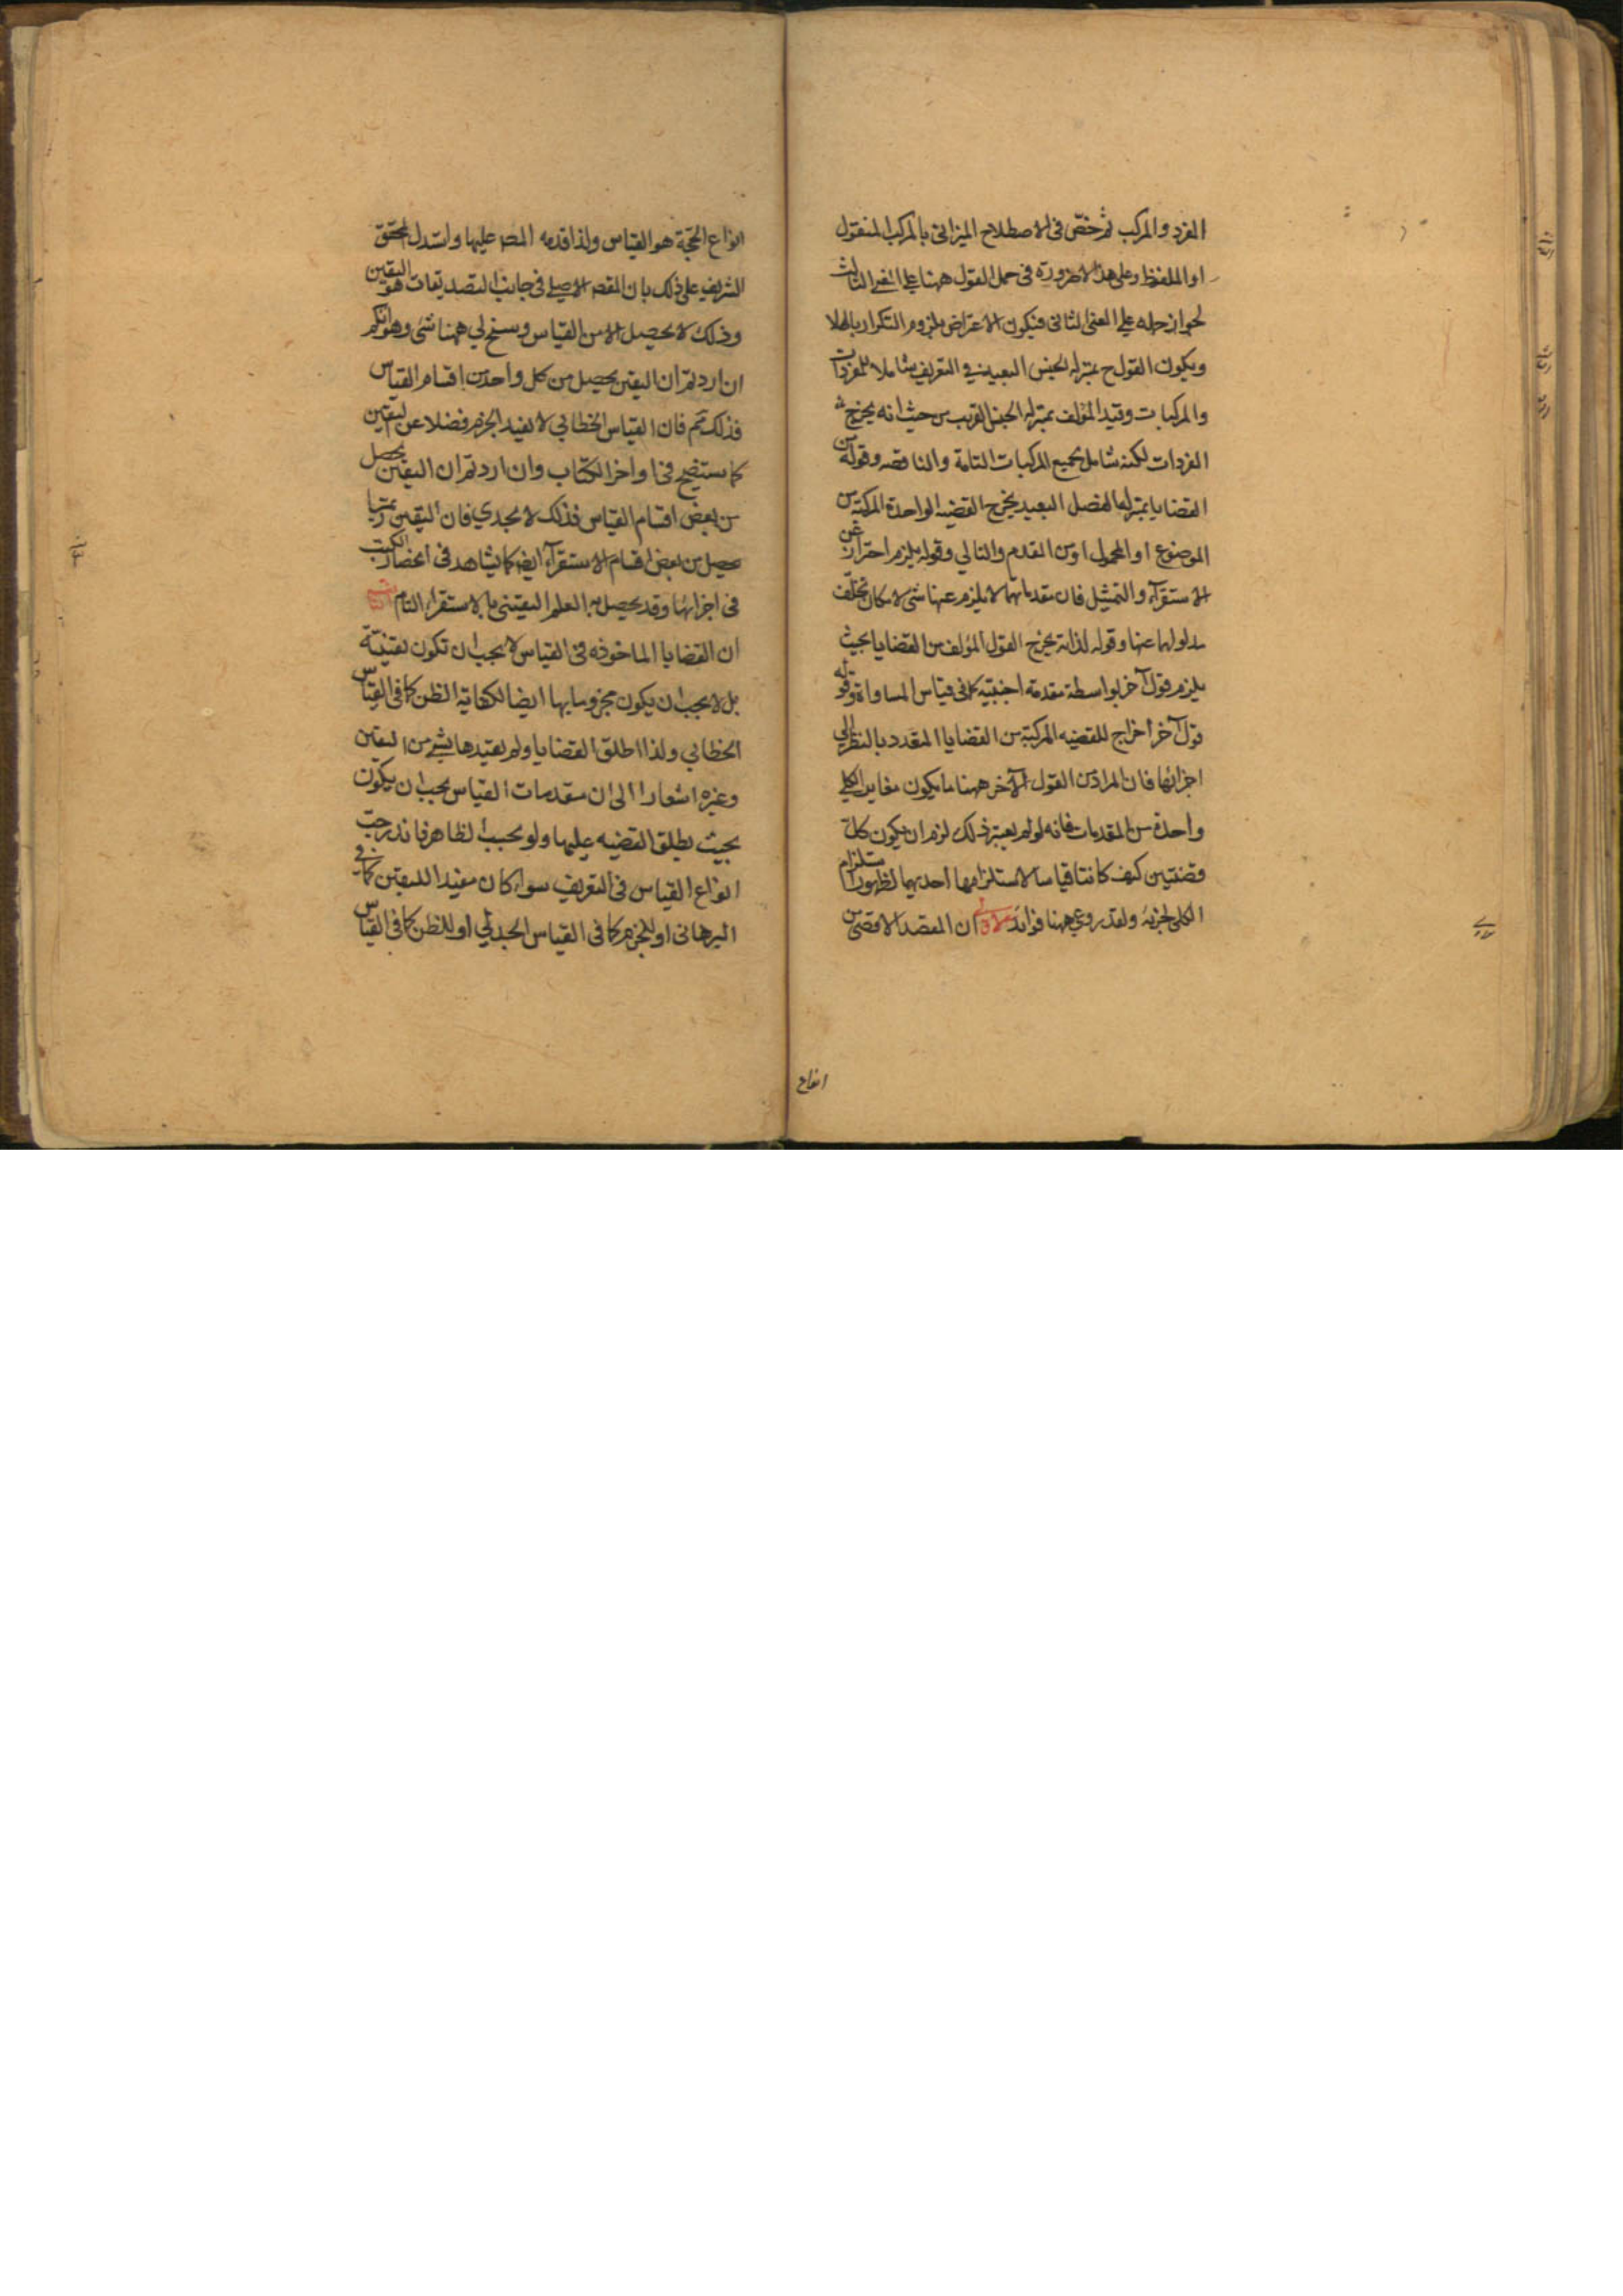 المفرد والمركب ثم خصّ فى الاصطلاح الميزانى بالمركب المعقول
او الملفوظ وعلى هذا لا ضرورة فى حمل القول ههنا على المعنى الثالث
لجواز حمله على المعنى الثانى فيكون الاعتراض بلزوم التكرار باطلا
ويكون القول ح بمنزلة الجنس البعيد فى التعريف شاملا للمفردات
والمركبات وقيد المؤلف بمنزلة الجنس القريب من حيث انه يخرج
المفردات لكنه شامل لجميع المركبات التامة والناقصه وقوله من
القضايا بمنزلة الفصل البعيد يخرج القضيه الواحدة المركبة من
الموضوع او المحمول او من المقدم والتالي وقوله يلزم احتراز عن
الاستقرآء والتمثيل فان مقدماتهما لا يلزم عنها شى لامكان تخلف
مدلولهما عنها وقوله لذاته يخرج القول المؤلف من القضايا بحيث
يلزم قول آخر بواسطة مقدمة اجنبيه كما فى قياس المساواة وقوله
قول آخر اخراج للقضيه المركبة من القضايا المتعدد بالنظر الي
اجزائها فان المراد من القول الآخر ههنا ما يكون مغاير الكل
واحدة من المقدمات فانه لو لم يعتبر ذلك لزم ان يكون كل
قضيتين كيف كانتا قياسا لاستلزامها احديهما لظهور استلزام
الكلى لجزئه ولقد روعي ههنا فوائد الاولى ان المقصد الاقصى من
انواع
انواع الحجة هو القياس ولذا قدمه المصه عليها واستدل المحقق
الشريف على ذلك بان المقصه الاصلى فى جانب التصديقات هو اليقين
وذلك لا يحصل الا من القياس وسنح لي ههنا شئ وهو انكم
ان اردتم ان اليقين يحصل من كل واحد من اقسام القياس
فذلك ثم فان القياس الخطابي لا يفيد الجزم فضلا عن اليقين
كما ستضح فى اواخر الكتاب وان اردتم ان اليقين يحصل
من بعض اقسام القياس فذلك لا يجدي فان اليقين ربما
يحصل من بعض اقسام الاستقرآء ايضا كما يشاهد فى انحصار الكتب
فى اجزائها وقد يحصل به العلم اليقينى بالاستقراء التام الثانية
ان القضايا الماخوذه فى القياس لا يجب ان تكون يقينية
بل لا يجب ان يكون مجزوما بها ايضا لكفاية الظن كما فى القياس
الخطابي ولذا اطلق القضايا ولم يقيدها بشئ من اليقين
وغيره اشعارا الى ان مقدمات القياس يجب ان يكون
بحيث يطلق القضيه عليها ولو بحسب الظاهر فاندرجت
انواع القياس فى التعريف سواء كان مفيدا لليقين كما فى
البرهانى او للجزم كما فى القياس الجدلي او للظن كما فى القياس